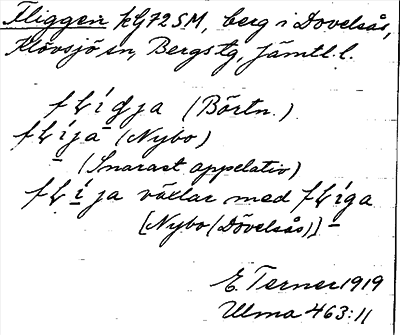 Fliggen kG72SM, berg i Dovelsås,
Klövsjö sn, Bergs tg, Jämtl. l.
fLígja (Börtn.)
fLíja (Nybo)
(Snarast appelativ)
fLíja växlar med fLíga
[Nybo (Dövelsås)]
E. Terner 1919
Ulma 463:11